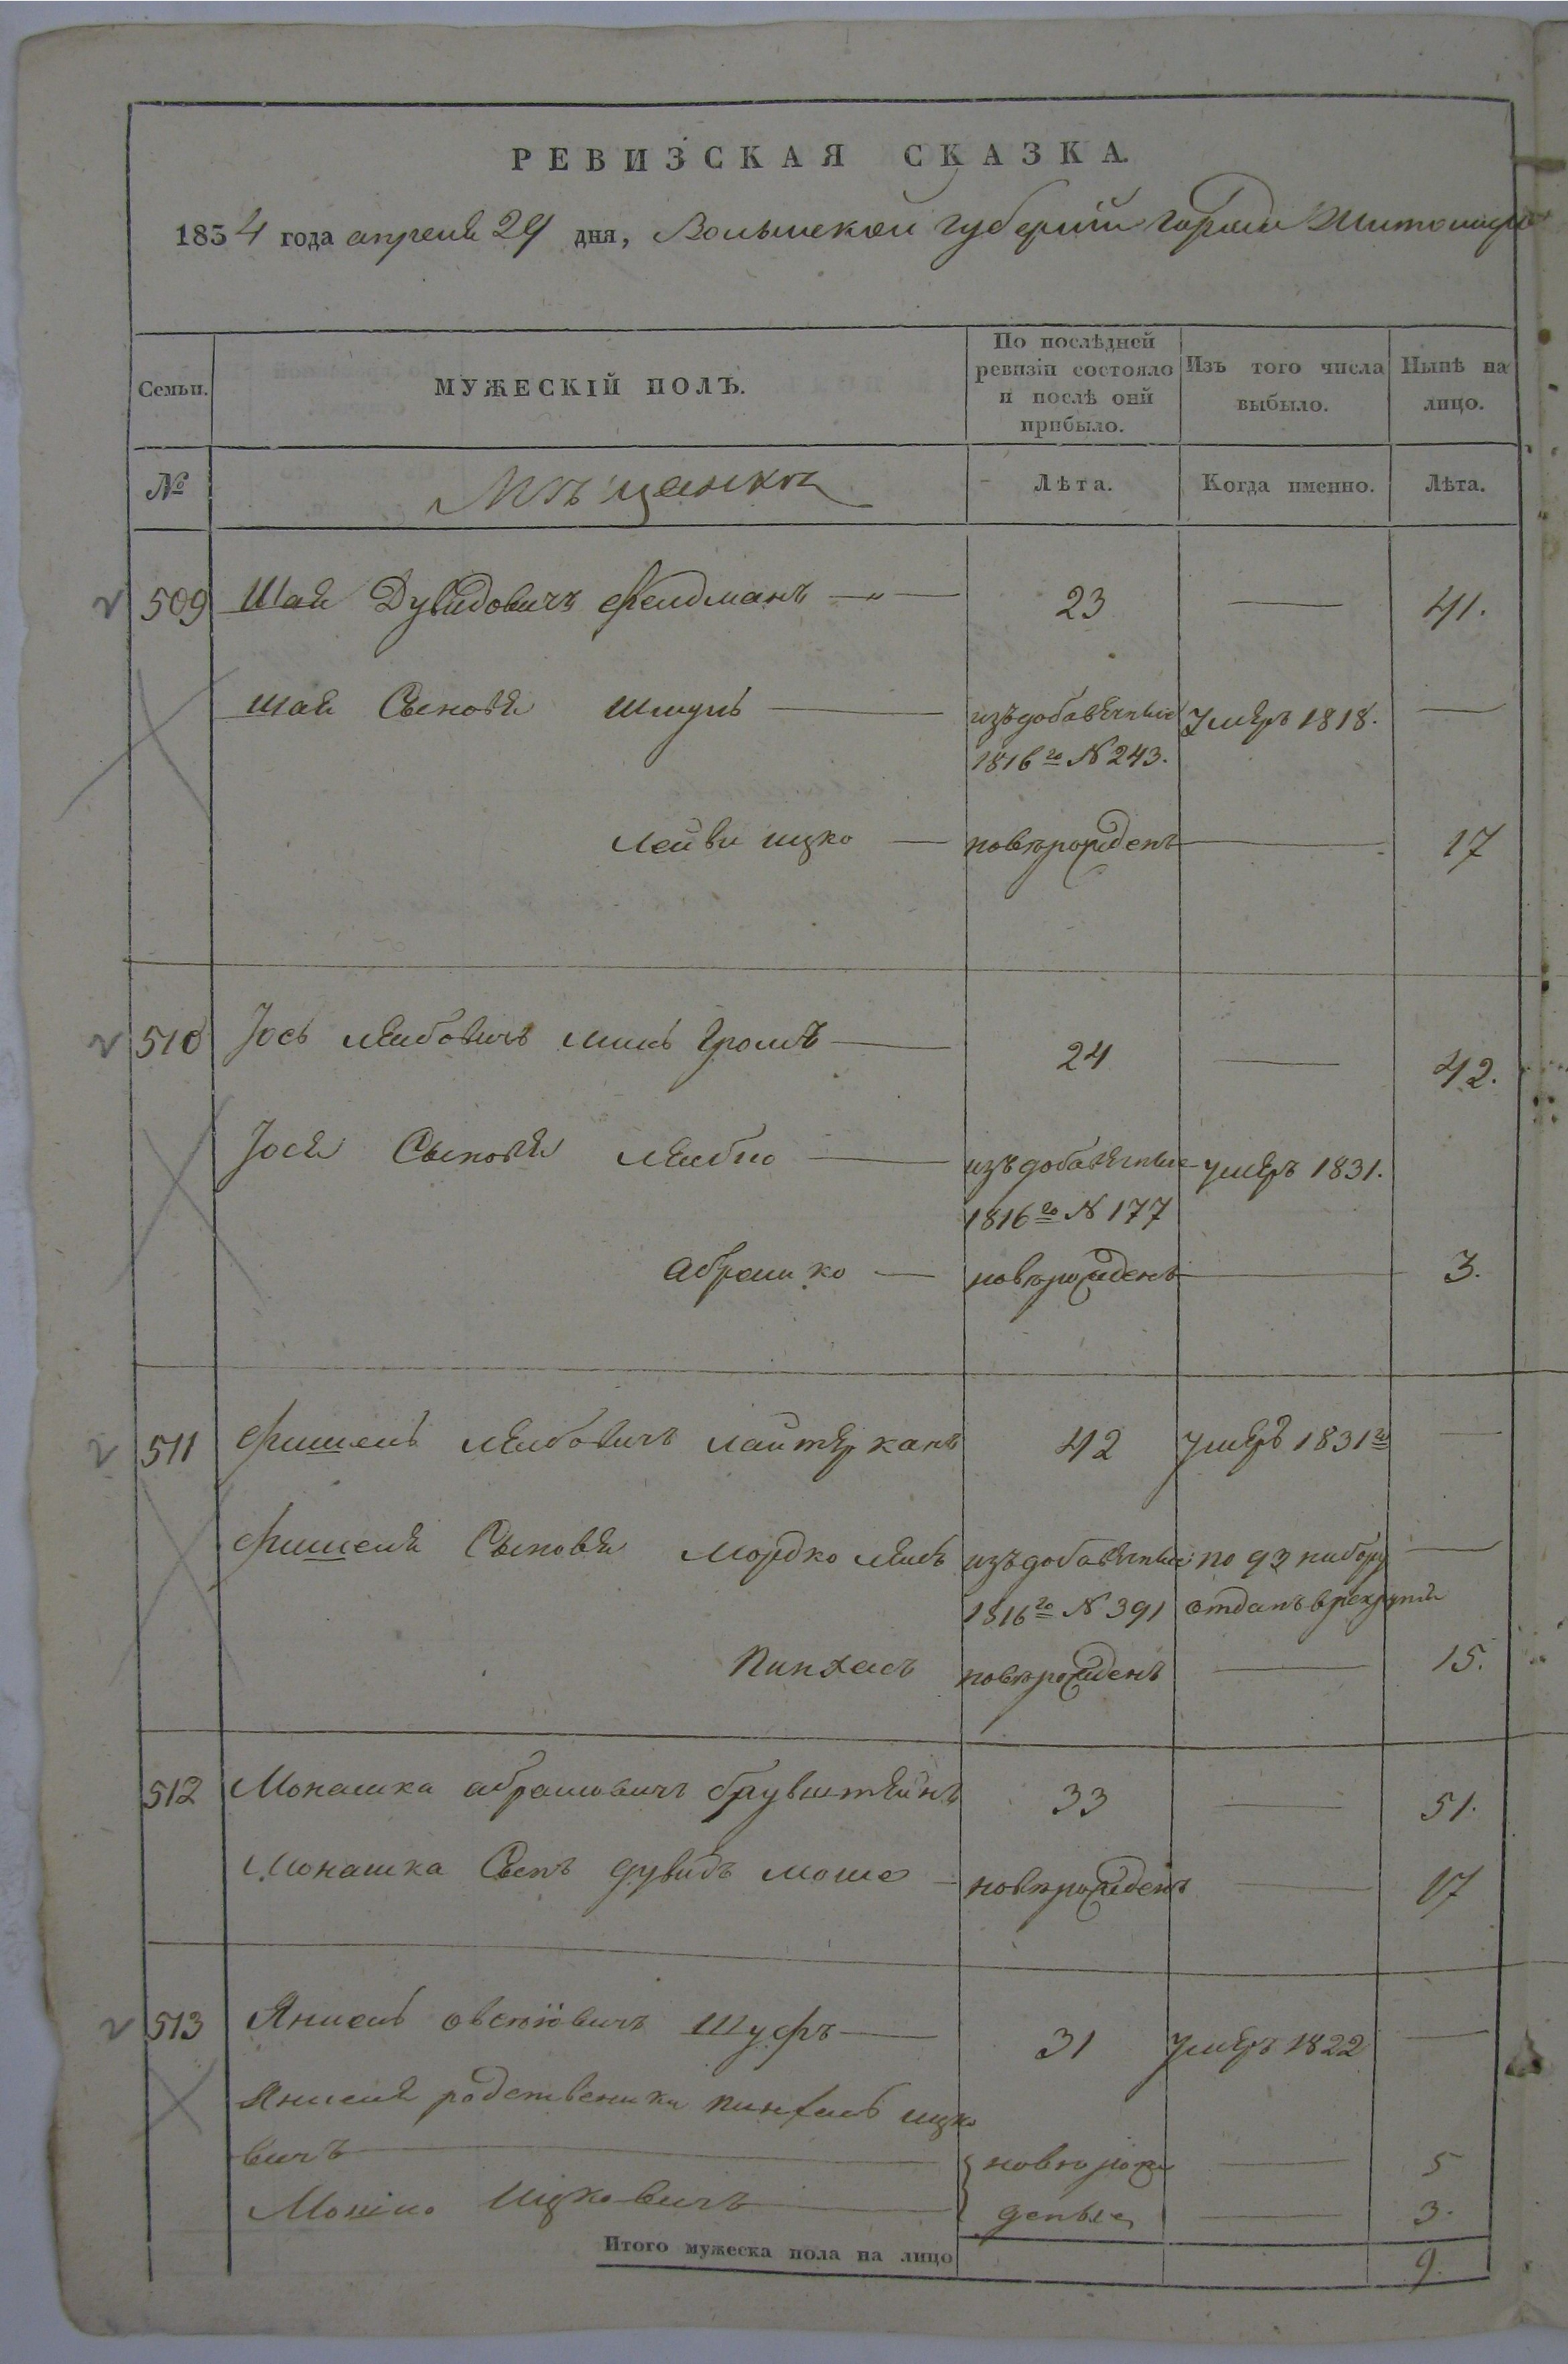 РЕВИЗСКАЯ СКАЗКА.
1834 года апреля 29 дня, Волынской губернии города Житомира
Семьи. МУЖЕСКІЙ ПОЛЪ. По послѣдней ревизіи состояло и послѣ оной прибыло. Изъ того числа выбыло. Нынѣ на лицо.
№ Мѣщанкъ Лѣта. Когда именно. Лѣта.
509 Шая Дувидовичъ Фелдманъ 23 — 41.
Шая Сыновя Шмуль изъ добавячные Умяръ 1818. —
1816го № 243.
Лейви ицко новорожденъ — 17
510 Іось Ляйбовичъ 24 — 42.
Іося Сыновя Ляйбио изъ добавячные умяръ 1831.
1816го № 177
Абрамко новорожденъ — 3.
511 Фишель Ляйбовичъ Лайтярканъ 42 Умяръ 1831го —
Фишеля Сыновя Мордко Ляйб изъ добавячные по 93 набору —
1816го № 391 отданъ в рекруты
Пинхасъ новорожденъ — 15.
512 Монашка Абрамовичъ 33 — 51.
Монашка Сынъ Дувидъ Моше новорожденъ — 17
513 Янкель Овсѣіовичъ Шуфъ 31 Умяръ 1822 —
родственики Пинхасъ Ицко
вичъ новорож — 5
Мошко Ицковичъ деные — 3.
Итого мужеска пола на лицо 9.